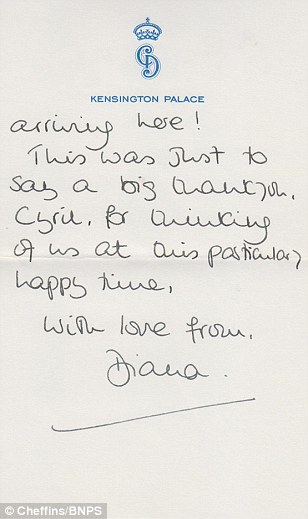 KENSINGTON PALACE
arriving here!
This was just to
say a big thankyou,
Cyril, for thinking
of us at this particularly
happy time,
With love from,
Diana.
© Cheffins/BNPS